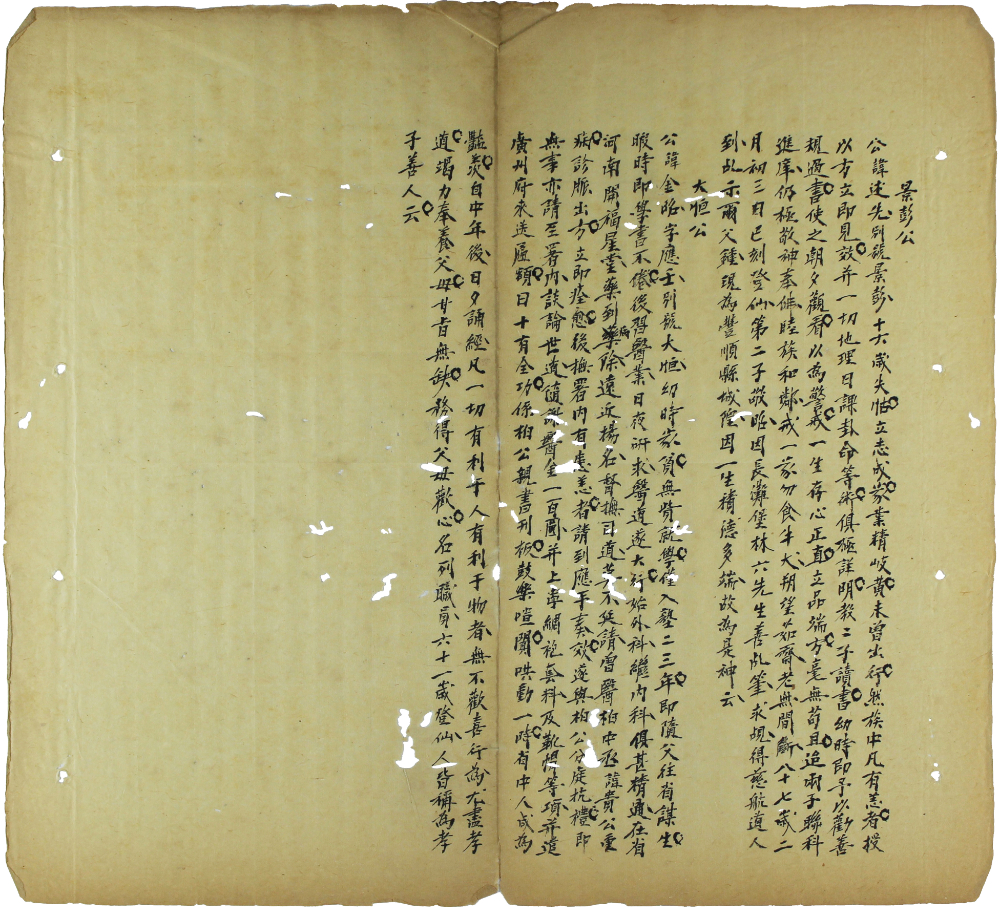 景彭公
公諱述先別號景彭十六歲失怙立志成家業精岐黃未曾出行然族中凡有恙者授
以方立即見效并一切地理日課卦命等術俱極詳明教二子讀書幼時即予以勸善
規過書使之朝夕觀看以為警戒一生存心正直立品端方毫無苟且迨兩子聯科
進庠仍極敬神奉佛睦族和鄰戒一家勿食牛犬朔望茹齋老無間斷八十七歲二
月初三日巳刻登仙第二子敬昭因長灘堡林六先生善乩筆求現得慈航道人
到乩示爾父鍾現為豐順縣城隍因一生積德多端故為是神云
大恒公
公諱金昭字應壬別號大恒幼時家貧無貲就學僅入塾二三年即隨父往省謀生
暇時即學書不倦後習醫業日夜研求醫道遂大行始外科繼內科俱甚精通在省
河南開福星堂藥到病除遠近揚名督撫司道莫不延請當醫柏中丞諱貴公重
病診脈出方立即痊愈後撫署內有患恙者請到應手奏效遂與柏公分庭抗禮即
無事亦請至署內談論世道隨謝醫金一百圓并上等綢袍套料及靴帽等項并遣
廣州府來送匾額曰十有全功係柏公親書刊板鼓樂喧闐哄動一時省中人咸為
豔羨自中年後日夕誦經凡一切有利于人有利于物者無不歡喜行為尤盡孝
道竭力奉養父母甘旨無缺務得父母歡心名列職員六十一歲登仙人皆稱為孝
子善人云